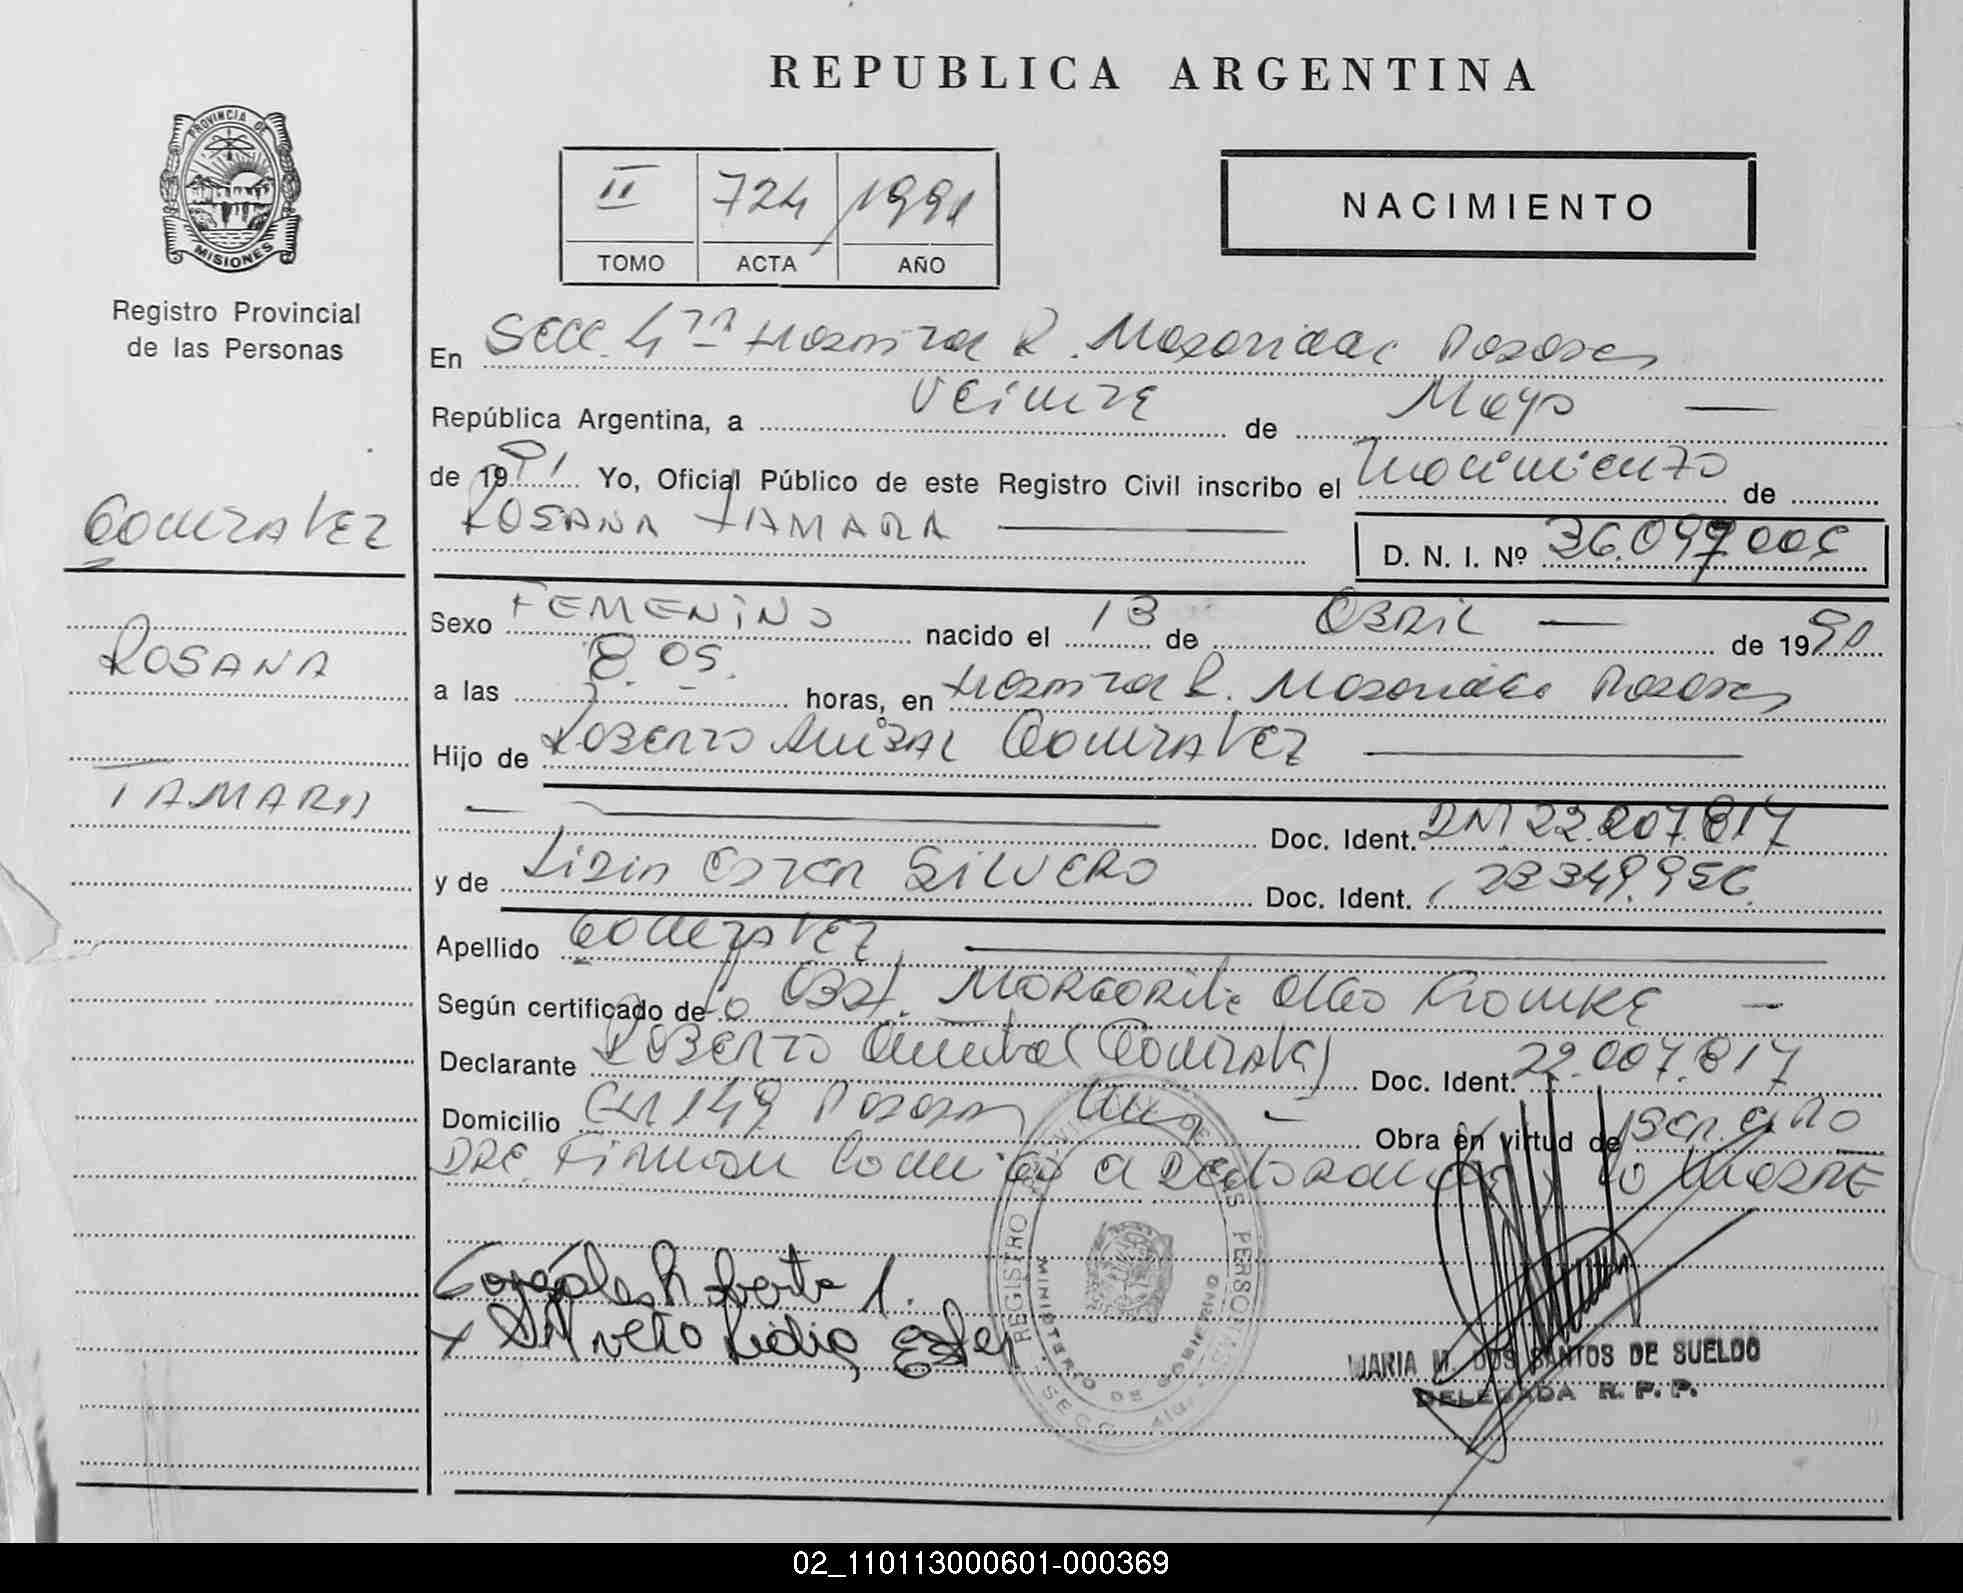 REPUBLICA ARGENTINA
PROVINCIA DE
MISIONES
Registro Provincial
de las Personas
II 724 1991
TOMO ACTA AÑO
NACIMIENTO
GONZALEZ
ROSANA
TAMARA
En Secc. 4ta Hospital R. Madariaga Posadas
República Argentina, a veinte de Mayo
de 1991 Yo, Oficial Público de este Registro Civil inscribo el nacimiento de
ROSANA TAMARA
D. N. I. Nº 36.097.00
Sexo FEMENINO nacido el 13 de Abril de 19
a las 8.05. horas, en Hospital R. Madariaga Posadas
Hijo de Roberto Anibal Gonzalez
Doc. Ident. DNI 22.007.817
y de Lidia Ester SILVERO Doc. Ident. 23349.956
Apellido Gonzalez
Según certificado de la Obst. Margarita
Declarante Roberto Anibal Gonzalez Doc. Ident. 22.007.817
Domicilio 149 Posadas Mnes Obra en virtud de ser el PA
DRE Firman conmigo el declarante y la MADRE
González Roberto A.
x Silvero Lidia Ester
REGISTRO PROVINCIAL DE LAS PERSONAS
MINISTERIO DE GOBIERNO
SECC. 4ta.
MARIA M. DOS SANTOS DE SUELDO
DELEGADA R. P. P.
02_110113000601-000369